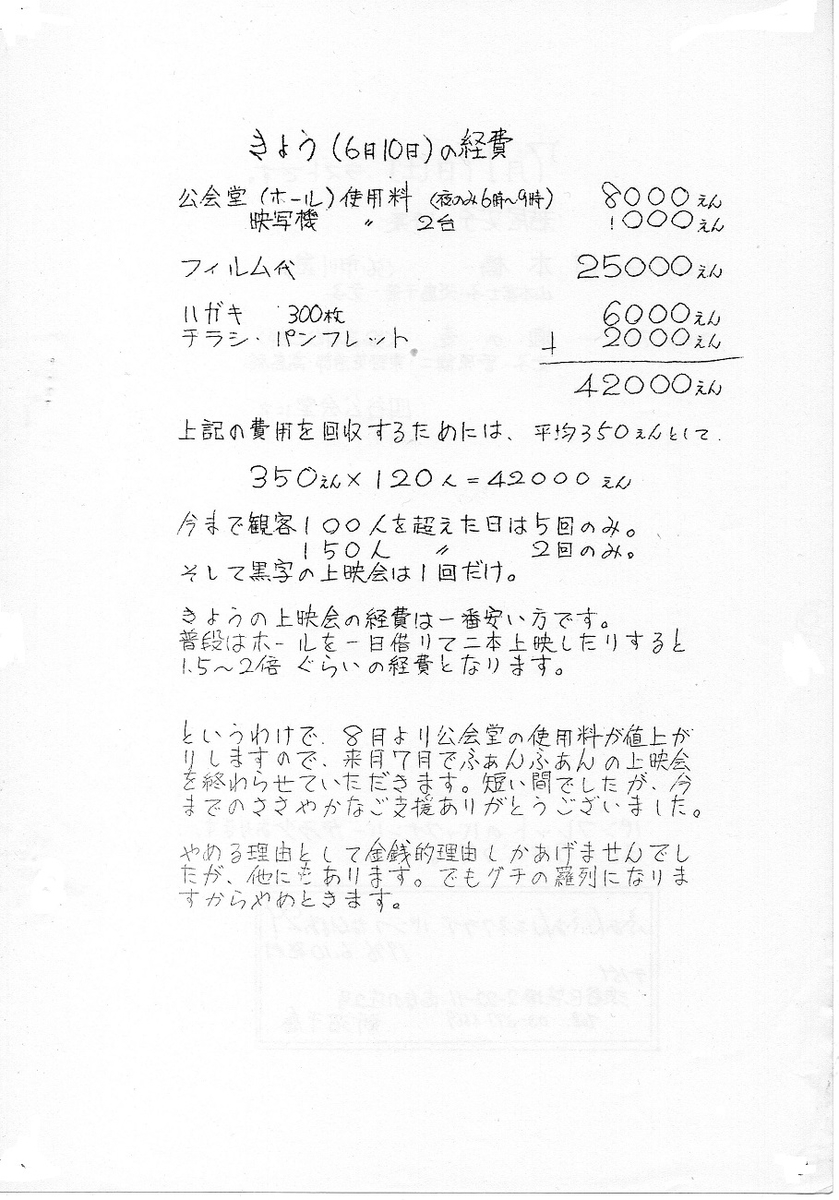 きょう(6月10日)の経費
公会堂(ホール)使用料(夜のみ6時~9時) 8000えん
映写機 〃 2台 1000えん
フィルム代 25000えん
ハガキ 300枚 6000えん
チラシ・パンフレット + 2000えん
42000えん
上記の費用を回収するためには、平均350えんとして.
350えん×120人=42000えん
今まで観客100人を超えた日は5回のみ。
150人 〃 2回のみ。
そして黒字の上映会は1回だけ。
きょうの上映会の経費は一番安い方です。
普段はホールを一日借りて二本上映したりすると
1.5~2倍ぐらいの経費となります。
というわけで、8月より公会堂の使用料が値上が
りしますので、来月7月でふぁんふぁんの上映会
を終わらせていただきます。短い間でしたが、今
までのささやかなご支援ありがとうございました。
やめる理由として金銭的理由しかあげませんでし
たが、他にもあります。でもグチの羅列になりま
すからやめときます。